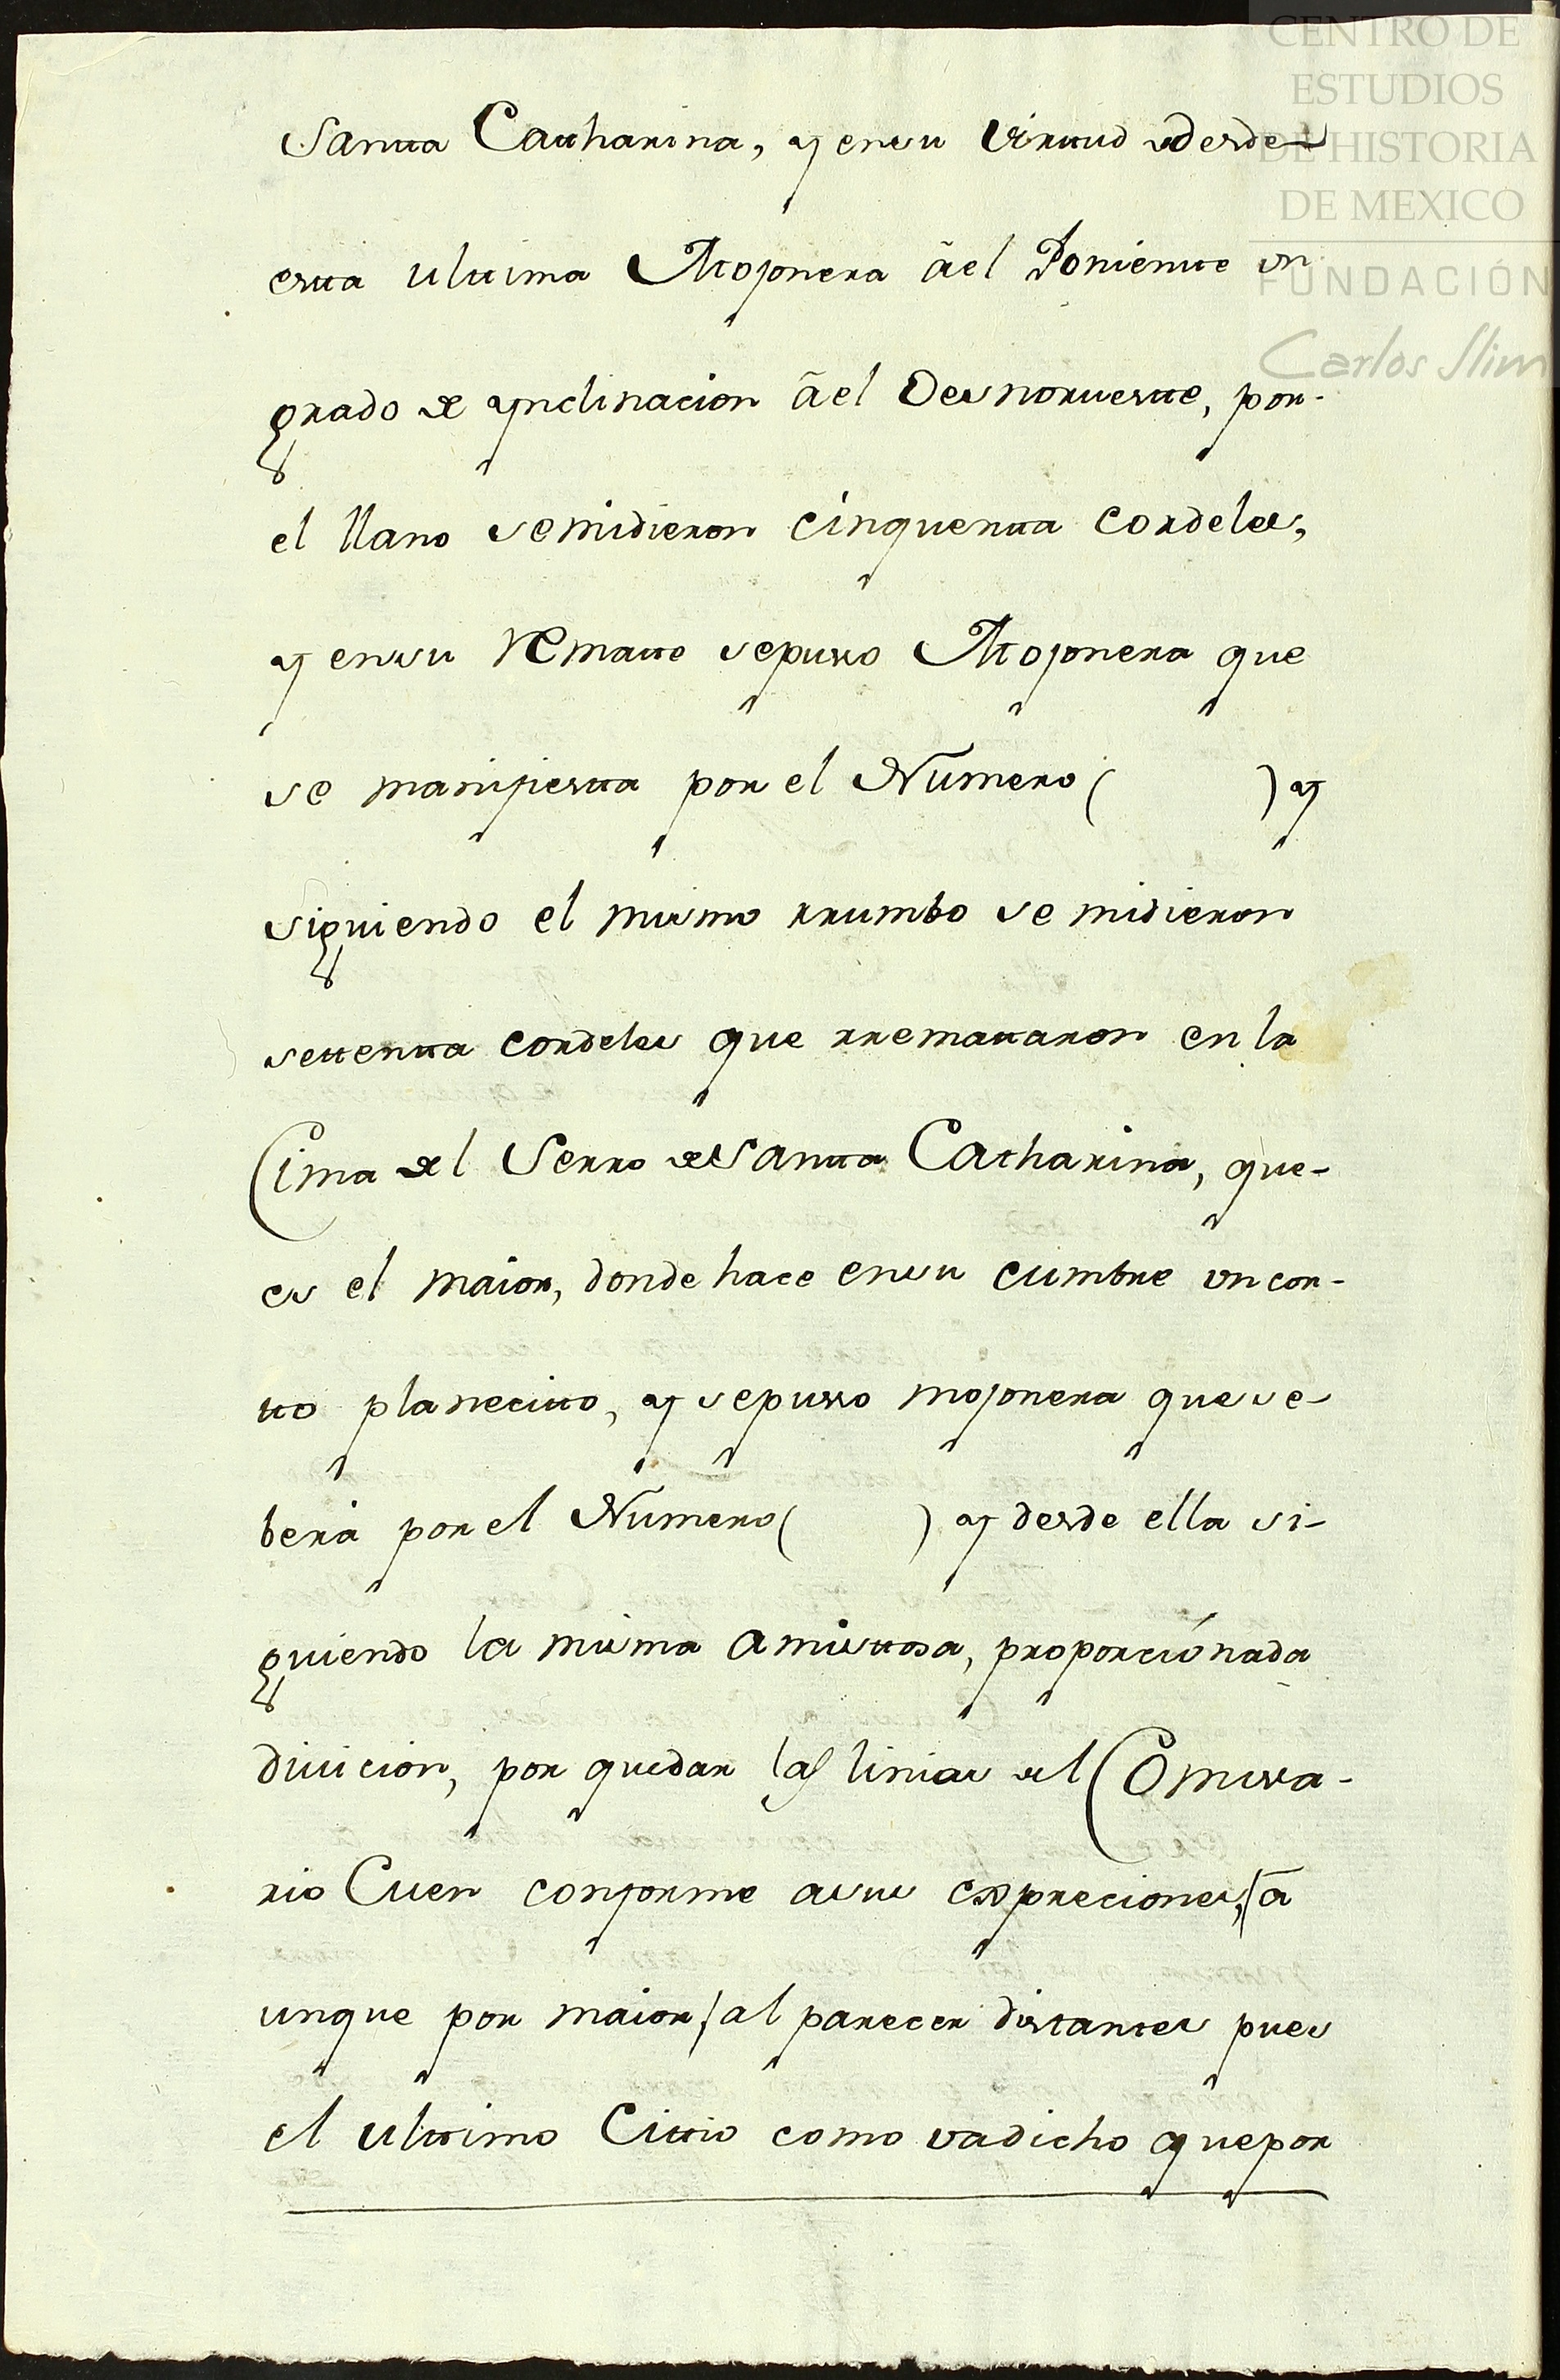 CENTRO DE
ESTUDIOS
DE HISTORIA
DE MEXICO
FUNDACIÓN
Carlos Slim
Santta Cattharina, y ensu virttud desde
estta ulttima Mojonera ãel Ponientte vn
grado de ynclinacion ãel Oesnoruestte, por-
el llano semidieron cinquentta cordeles,
y ensu rematte sepusso Mojonera que
se manifiestta por el Numero (          ) y
siguiendo el mismo rrumbo se midieron
settentta cordeles que rremattaron en la
Cima del Serro deSantta Catharina, que-
es el maior, donde hace ensu cumbre vn cor-
tto planecitto, y sepusso mojonera quese-
berá por el Numero (          ) y desde ella si-
guiendo la misma amisttosa, proporciónada
diuicion, por quedar las linias del Comissa-
rio Cuen conforme asus expreciones, / a
unque por maior / al parecer distantes pues
el ulttimo Cittio como vadicho quepor